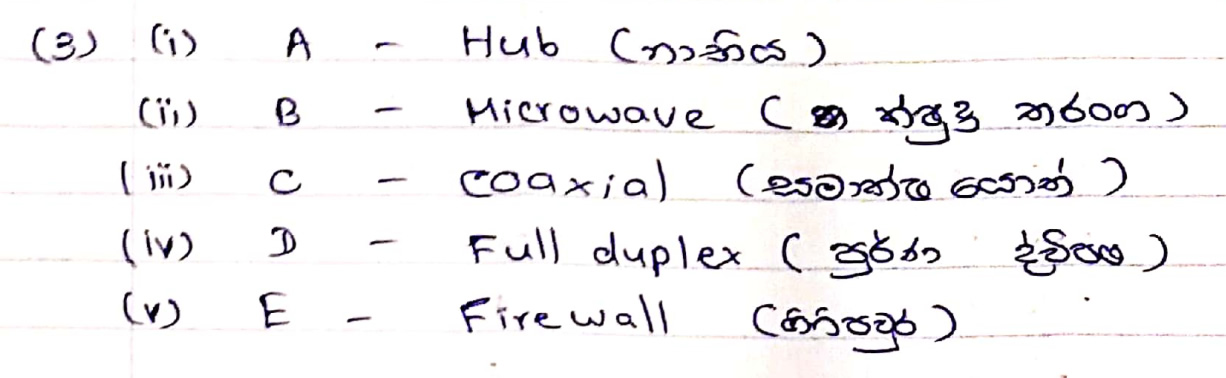 (3) (i) A - Hub (නාභිය)
(ii) B - Microwave (ක්ෂුද්‍ර තරංග)
(iii) C - coaxial (සමාක්ෂ යොත්)
(iv) D - Full duplex (පුර්ණ ද්විපථ)
(v) E - Firewall (ගිනිපවුර)